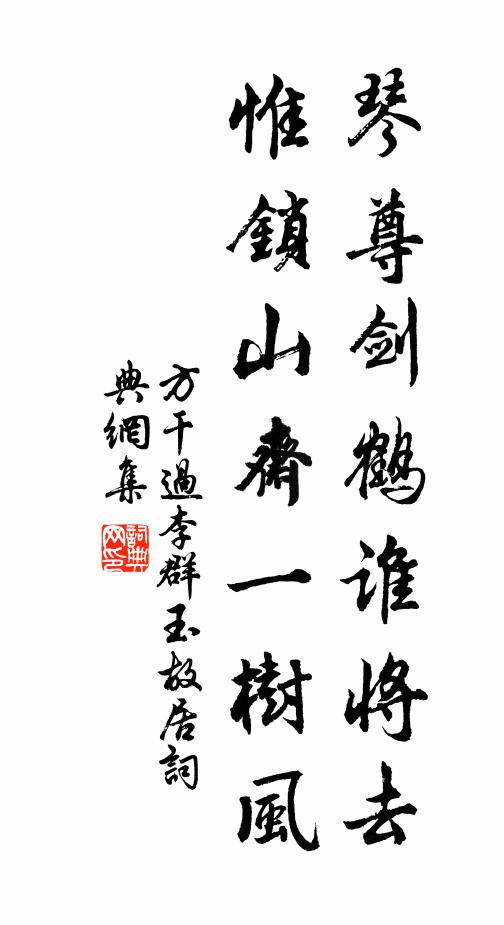 琴尊劍鶴誰將去
惟鎖山齋一樹風
方干過李群玉故居詞
典網集
詞典網印